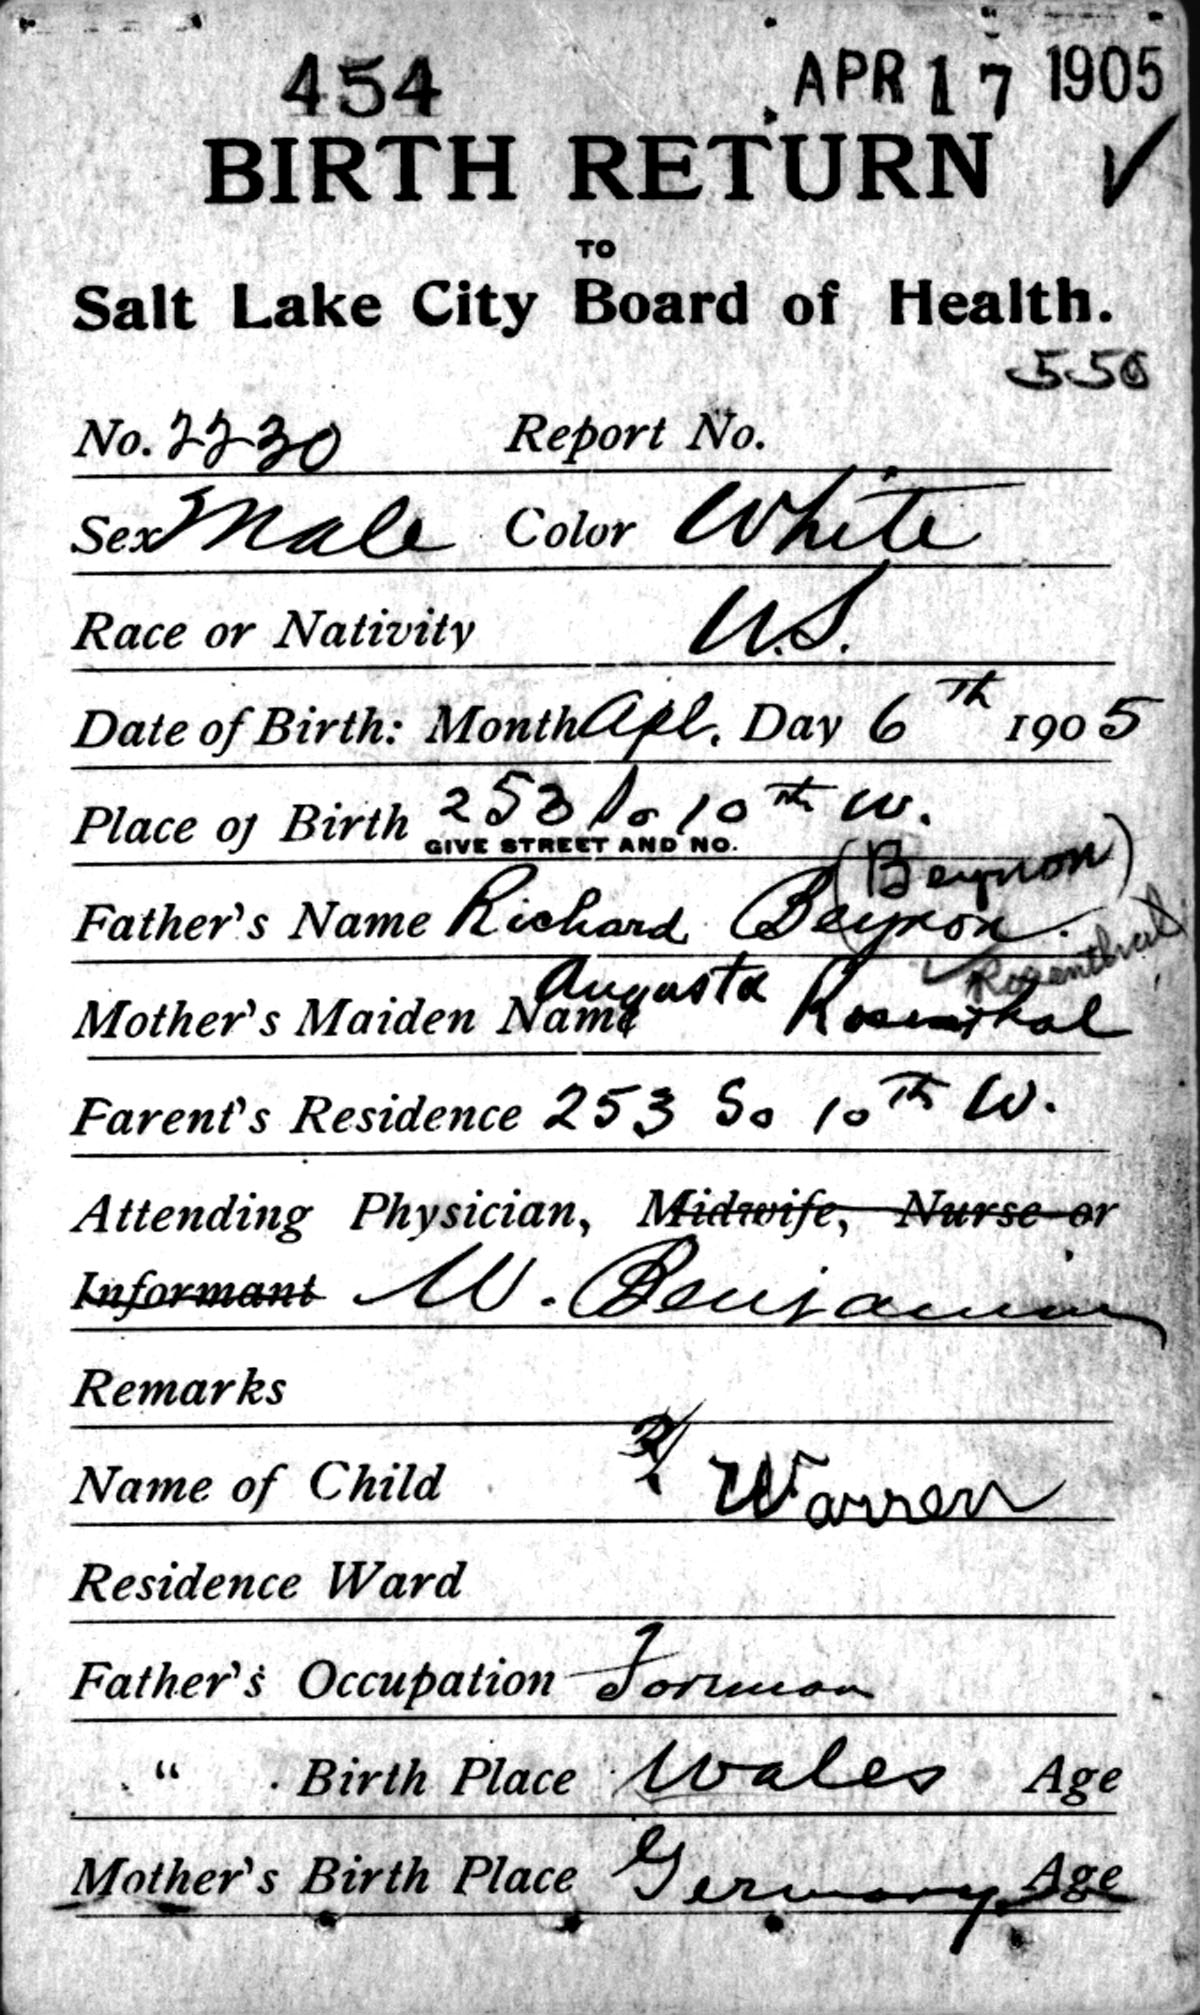 454 APR 17 1905
BIRTH RETURN ✓
TO
Salt Lake City Board of Health.
550
No. 2230 Report No.
Sex Male Color White
Race or Nativity U.S.
Date of Birth: Month Apl. Day 6th 1905
Place of Birth 253 So 10th W.
GIVE STREET AND NO.
(Beynon)
Father's Name Richard Beynon.
Rosenthal
Augusta
Mother's Maiden Name Rosenthal
Farent's Residence 253 So 10th W.
Attending Physician, Midwife, Nurse or
Informant W. Benjamin
Remarks
Name of Child Warren
Residence Ward
Father's Occupation Forman
" Birth Place Wales Age
Mother's Birth Place Germany Age